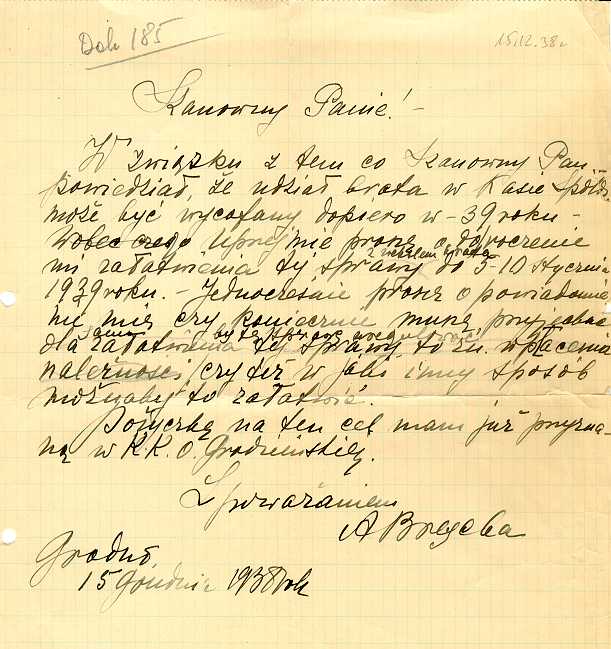 Dok 185
15.12.38 r
Szanowny Panie! -
W związku z tem co Szanowny Pan
powiedział, że udział brata w Kasie Spółdz.
może być wycofany dopiero w -39 roku -
Wobec czego uprzejmie proszę o odroczenie
mi załatwienia tej sprawy do 5-10 stycznia
1939 roku. - Jednocześnie proszę o powiadomie-
nie mię czy koniecznie muszę przyjechać
dla załatwienia tej sprawy to zn. wpłacenia
należności, czy też w jaki inny sposób
możnaby to załatwić.
Pożyczkę na ten cel mam już przyzna-
ną w K.K.O. Grodzieńskiej.
Z poważaniem
A Bregeba
Grodno,
15 Grudnia 1938 rok